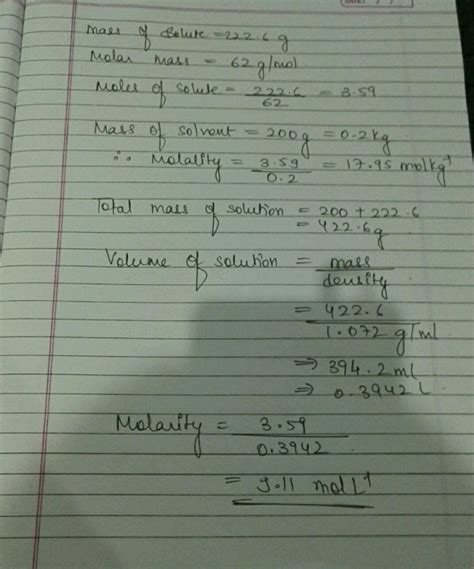 Mass of Solute = 222.6 g
Molar mass = 62 g/mol
Moles of solute = 222.6 / 62 = 3.59
Mass of solvent = 200g = 0.2 kg
∴ Molality = 3.59 / 0.2 = 17.95 mol kg⁻¹
Total mass of solution = 200 + 222.6
= 422.6g
Volume of solution = mass / density
= 422.6 / 1.072 g/ml
⇒ 394.2 ml
⇒ 0.3942 L
Molarity = 3.59 / 0.3942
= 9.11 mol L⁻¹